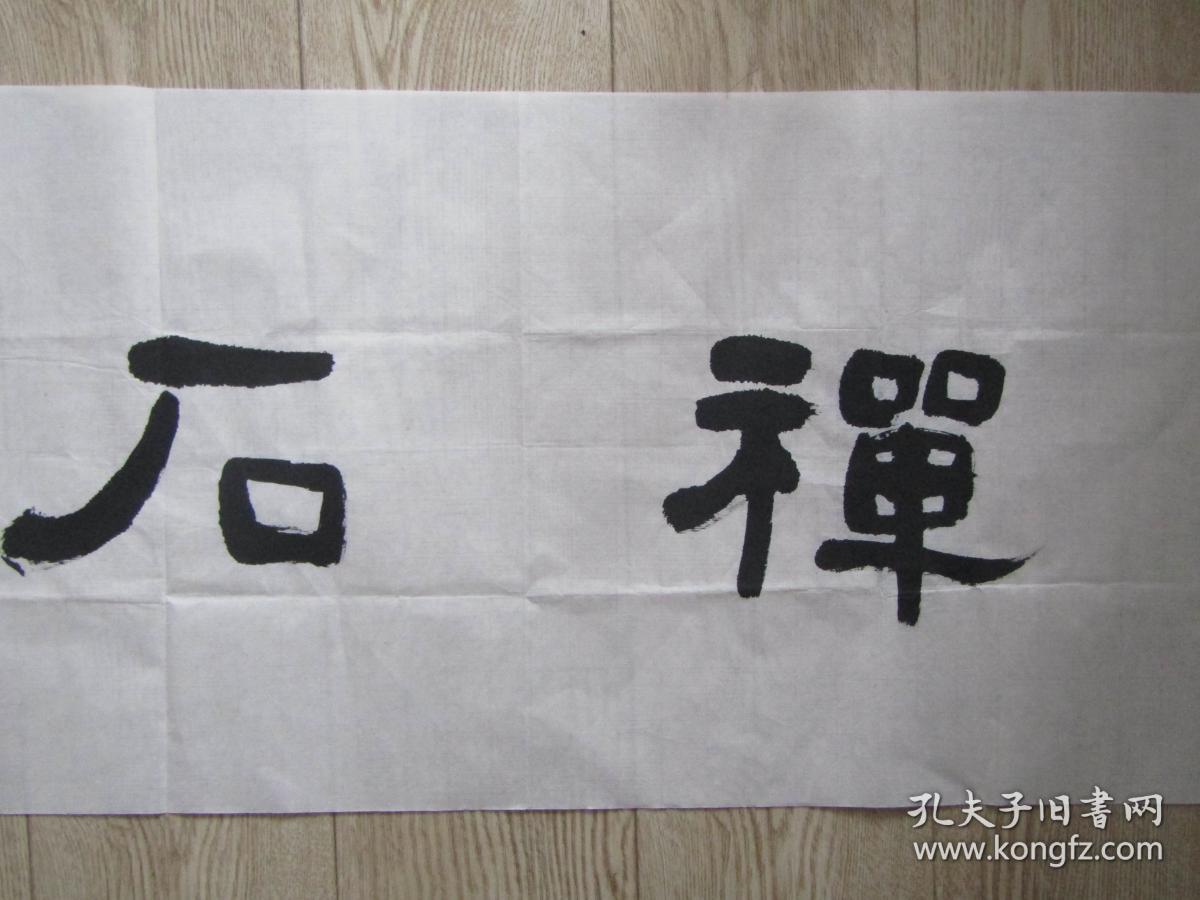 禪石
孔夫子旧書网
www.kongfz.com